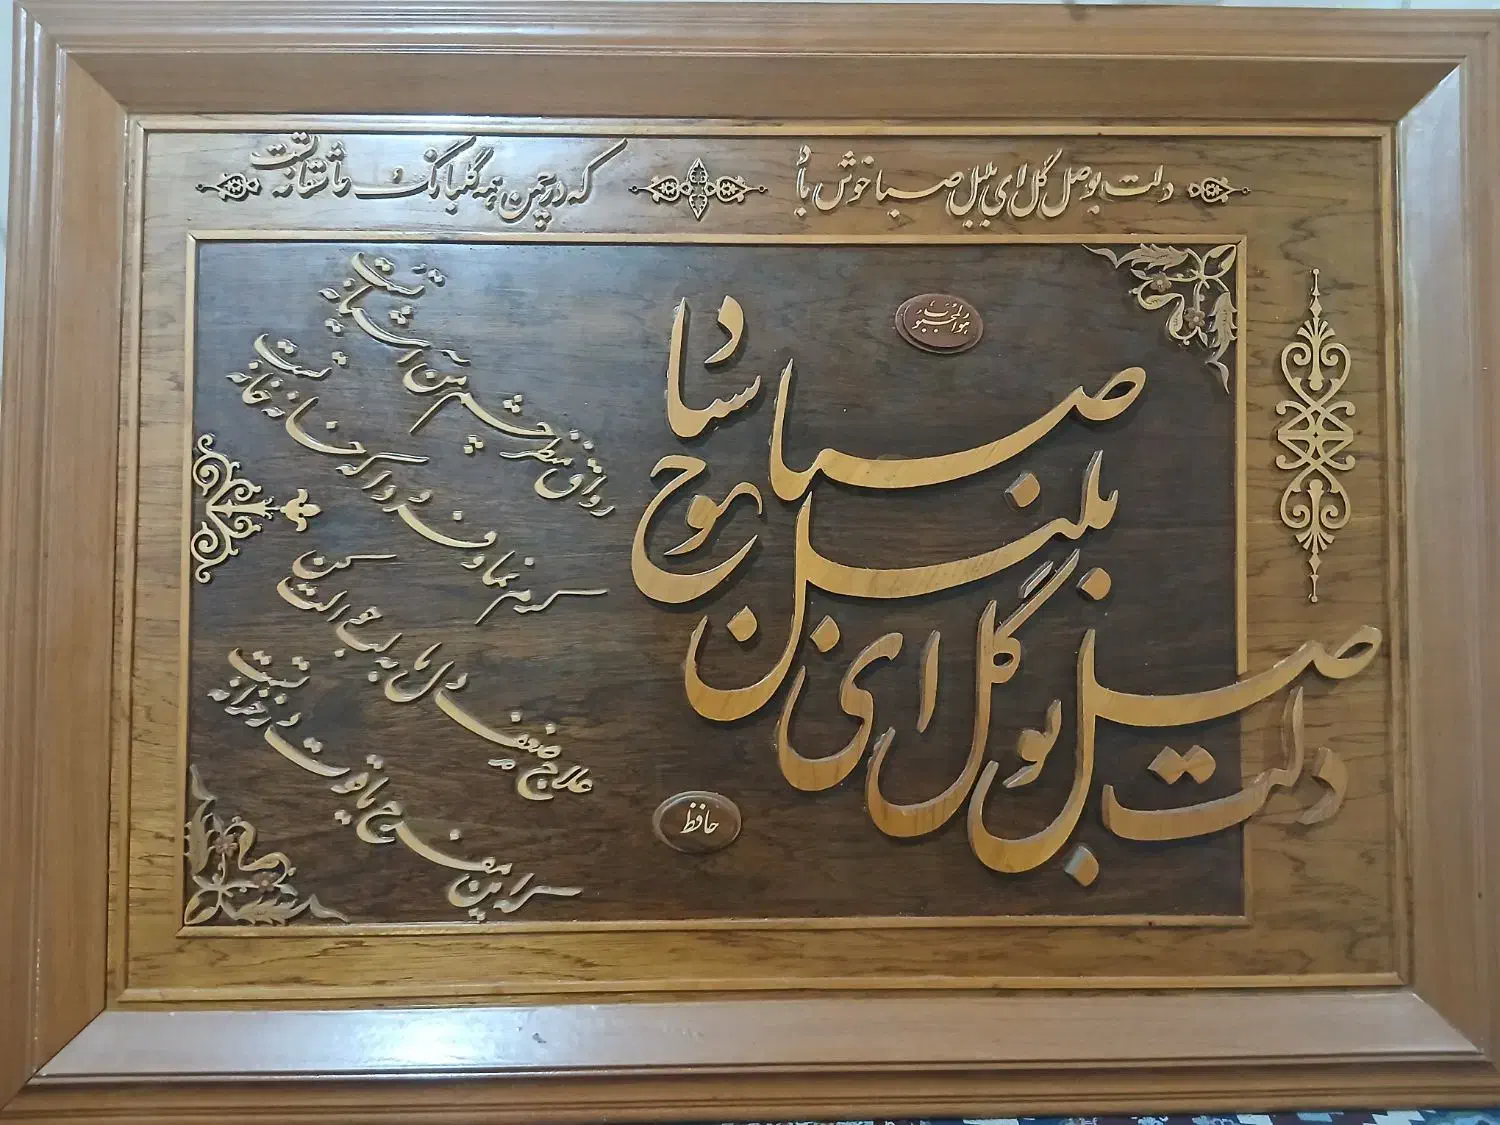 دلت بوصل گل ای بلبل صبا خوش باد
که در چمن همه گلبانگ عاشقانه تست
هوالمحبوب
دلت بوصل گل ای بلبل صبا خوش باد
رواق منظر چشم من آشیانه تست
کرم نما و فرود آ که خانه خانه تست
علاج ضعف دل ما به لب حوالت کن
که این مفرح یاقوت در خزانه تست
حافظ